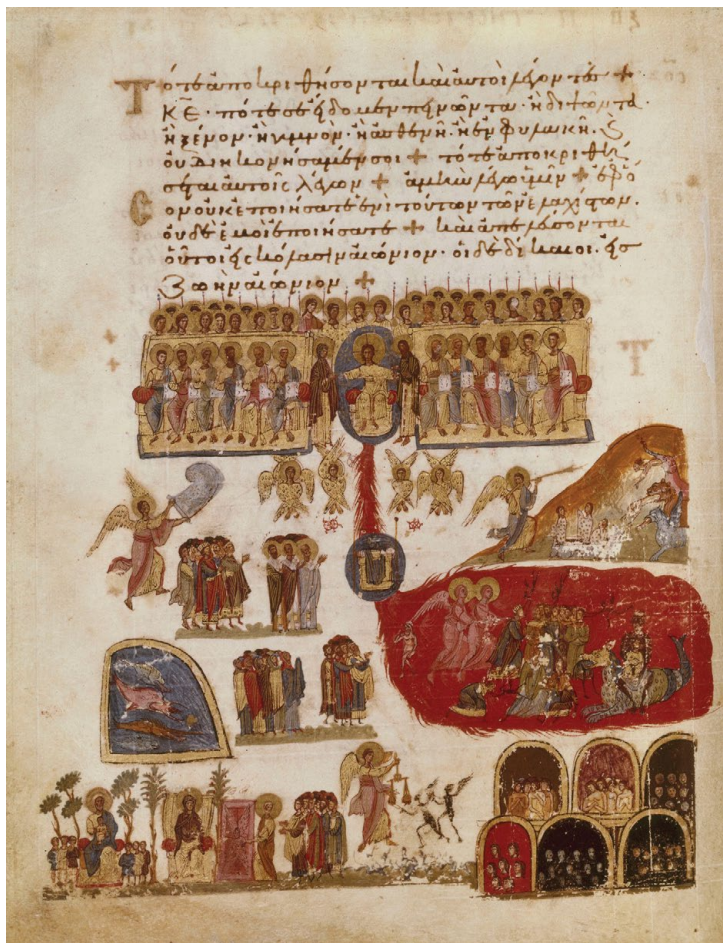 Τότε ἀποκριθήσονται καὶ αὐτοὶ λέγοντες +
Κ̅Ε̅· πότε σὲ εἴδομεν πεινῶντα· ἢ διψῶντα·
ἢ ξένον· ἢ γυμνὸν· ἢ ἀσθενῆ· ἢ ἐν φυλακῆ· ϗ
οὐ διηκονήσαμέν σοι + τότε ἀποκριθή
σεται αὐτοῖς λέγων + ἀμὴν λέγω ὑμῖν + ἐφ ὅ
Σον οὐκ ἐποιήσατε ἑνὶ τούτων τῶν ἐλαχίστων·
οὐδὲ ἐμοὶ ἐποιήσατε + καὶ ἀπελεύσονται
οὗτοι εἰς κόλασιν αἰώνιον· οἱ δὲ δίκαιοι· εἰς
ζωὴν αἰώνιον +